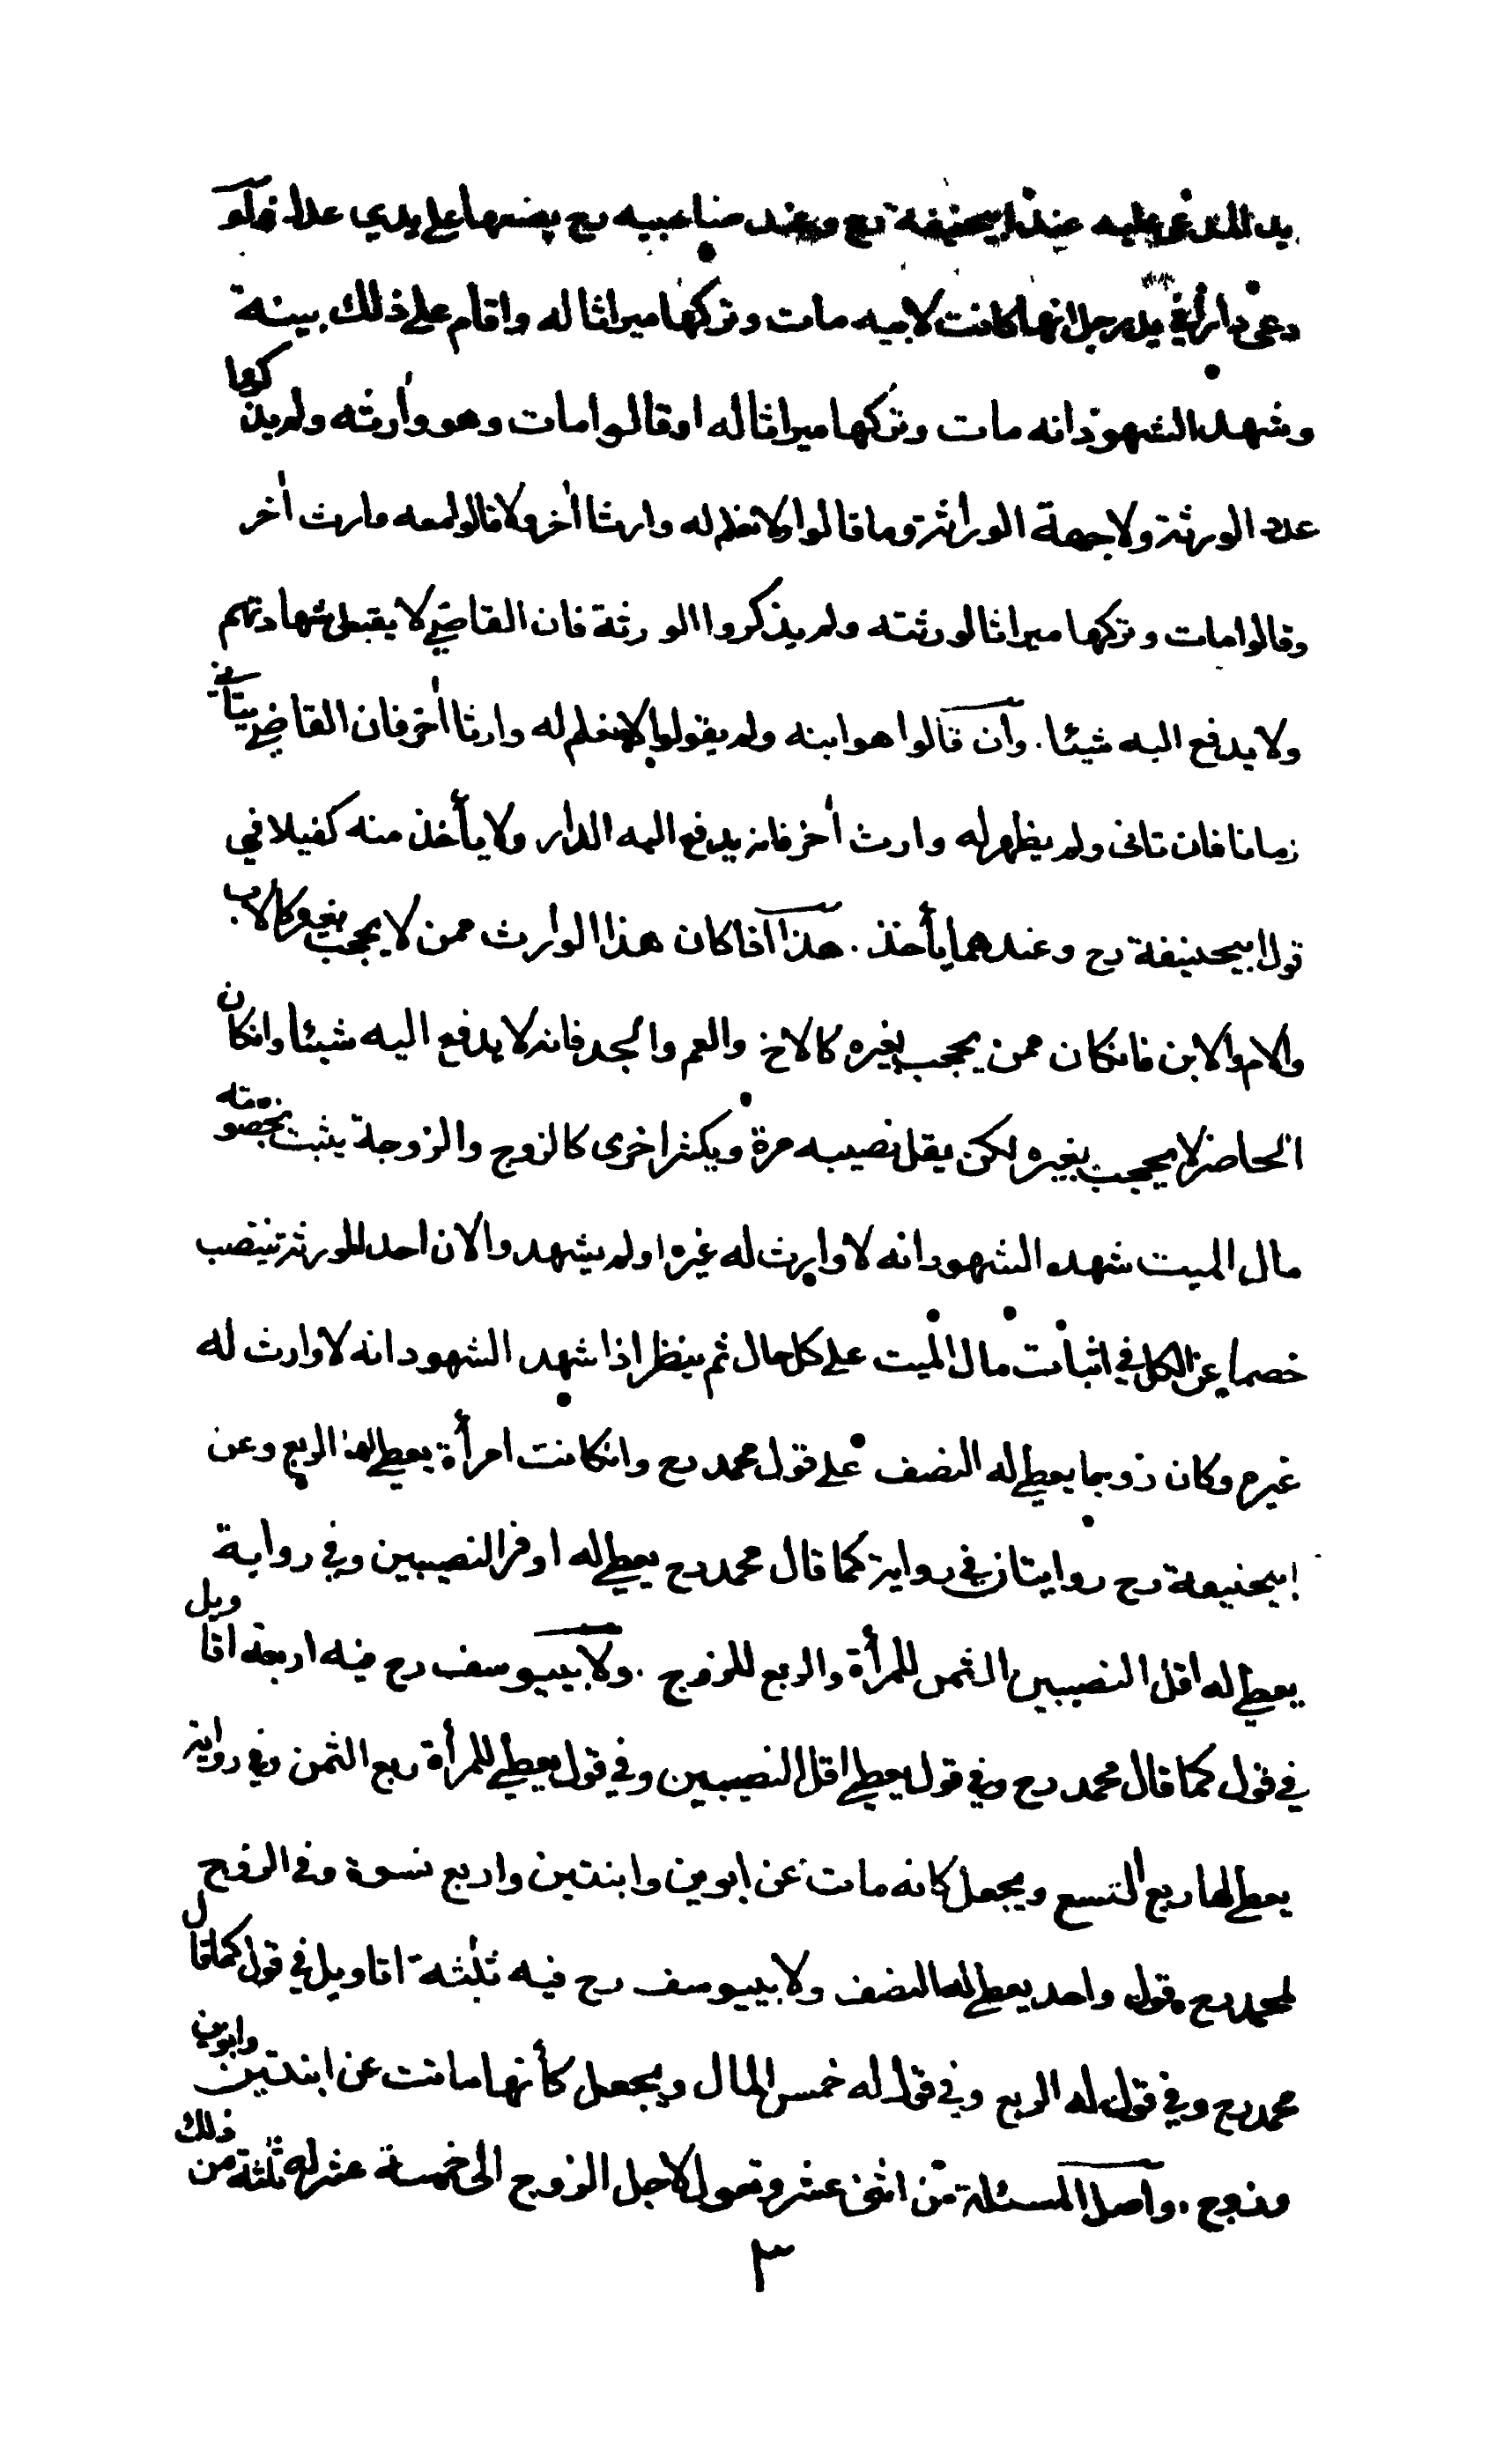 يد المدعى عليه عند ابيحنيفة رح وعند صاحبيه رح يضعها على يدي عدل ولو
دعى دارا في يد رجل انها كانت لابيه مات وتركها ميراثا له واقام على ذلك بينة
وشهد الشهود انه مات وتركها ميراثا له او قالوا مات وهو وارثه ولم يذكروا
عدد الورثة ولا جهة الوراثة وما قالوا ولا نعلم له وارثا اٰخر ولا قالوا معه وارث اٰخر
وقالوا مات وتركها ميراثا لورثته ولم يذكروا الورثة فان القاضي لا يقبل شهادتهم
ولا يدفع اليه شيئا . وان قالوا هو ابنه ولم يقولوا لا نعلم له وارثا اٰخر فان القاضي يتأنى
زمانا فان تانى ولم يظهر له وارث اٰخر فانه يدفع اليه الدار ولا يأخذ منه كفيلا في
قول ابيحنيفة رح وعندهما يأخذ . هذا اذا كان هذا الوارث ممن لا يحجب بغيره كالاب
والام والابن فانكان ممن يحجب بغيره كالاخ والعم والجد فانه لا يدفع اليه شيئا وانكان
الحاضر لا يحجب بغيره لكن يقل نصيبه مرة ويكثر اخرى كالزوج والزوجة يثبت بخصومته
مال الميت شهد الشهود انه لا وارث له غيره او لم يشهدوا لان احد الورثة ينتصب
خصما عن الكل في اثبات مال الميت على كل حال ثم ينظر اذا شهد الشهود انه لا وارث له
غيره وكان زوجا يعطى له النصف على قول محمد رح وانكانت امرأة يعطى لها الربع وعن
ابيحنيفة رح روايتان في رواية كما قال محمد رح يعطى له اوفر النصيبين وفي رواية
يعطى له اقل النصيبين الثمن للمرأة والربع للزوج . ولابييوسف رح فيه اربعة اقاويل
في قول كما قال محمد رح وفي قول يعطى اقل النصيبين وفي قول يعطى للمرأة ربع الثمن وفي رواية
يعطى لها ربع التسع ويجعل كانه مات عن ابوين وابنتين واربع نسوة وفي الزوج
لمحمد رح قول واحد يعطى له النصف ولابييوسف رح فيه ثلٰثة اقاويل في قول كما قال
محمد رح وفي قول له الربع وفي قول له خمس المال ويجعل كأنها ماتت عن ابنتين وابوين
وزوج . واصل المسئلة من اثنى عشر وتعول لاجل الزوج الى خمسة عشر له ثلٰثة من ذلك
٣